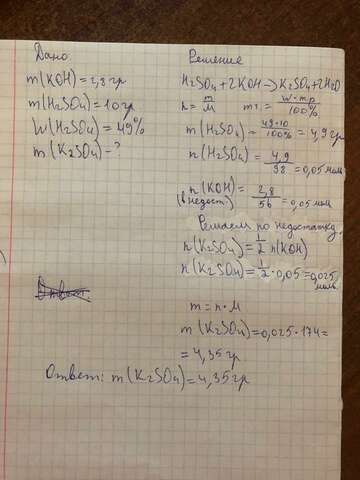 Дано
m(KOH)=2,8 гр
m(H₂SO₄)=10 гр
W(H₂SO₄)=49%
m(K₂SO₄)-?
Решение
H₂SO₄+2KOH→K₂SO₄+2H₂O
n=m/M m₁.=W·mр/100%
m(H₂SO₄)=49·10/100%=4,9 гр
n(H₂SO₄)=4,9/98=0,05 моль
n(KOH)=2,8/56=0,05 моль
(в недост)
Решаем по недостатку.
n(K₂SO₄)=1/2 n(KOH)
n(K₂SO₄)=1/2·0,05=0,025 моль
m=n·M
m(K₂SO₄)=0,025·174=
=4,35 гр
Ответ: m(K₂SO₄)=4,35 гр